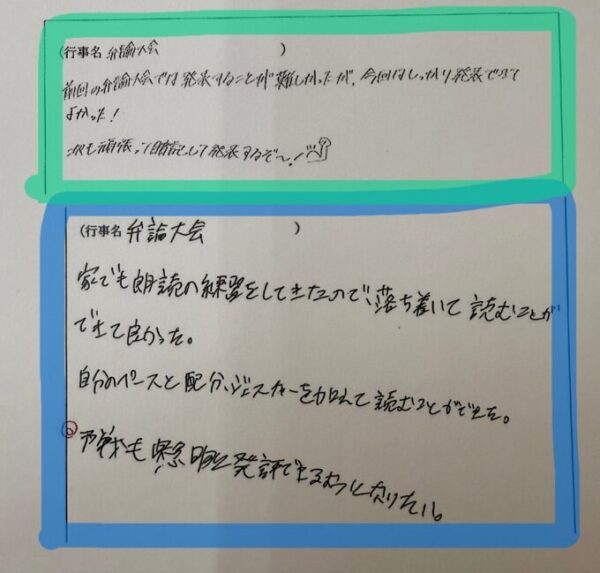 (行事名 弁論大会 )
前回の弁論大会では発表することが難しかったが、今回はしっかり発表できて
よかった！
次も頑張って暗記して発表するぞ〜！
(行事名 弁論大会 )
家でも朗読の練習をしてきたので、落ち着いて読むことが
できて良かった。
自分のペースと配分、ジェスチャーを加えて読むことができた。
も 発許できるようになりたい。